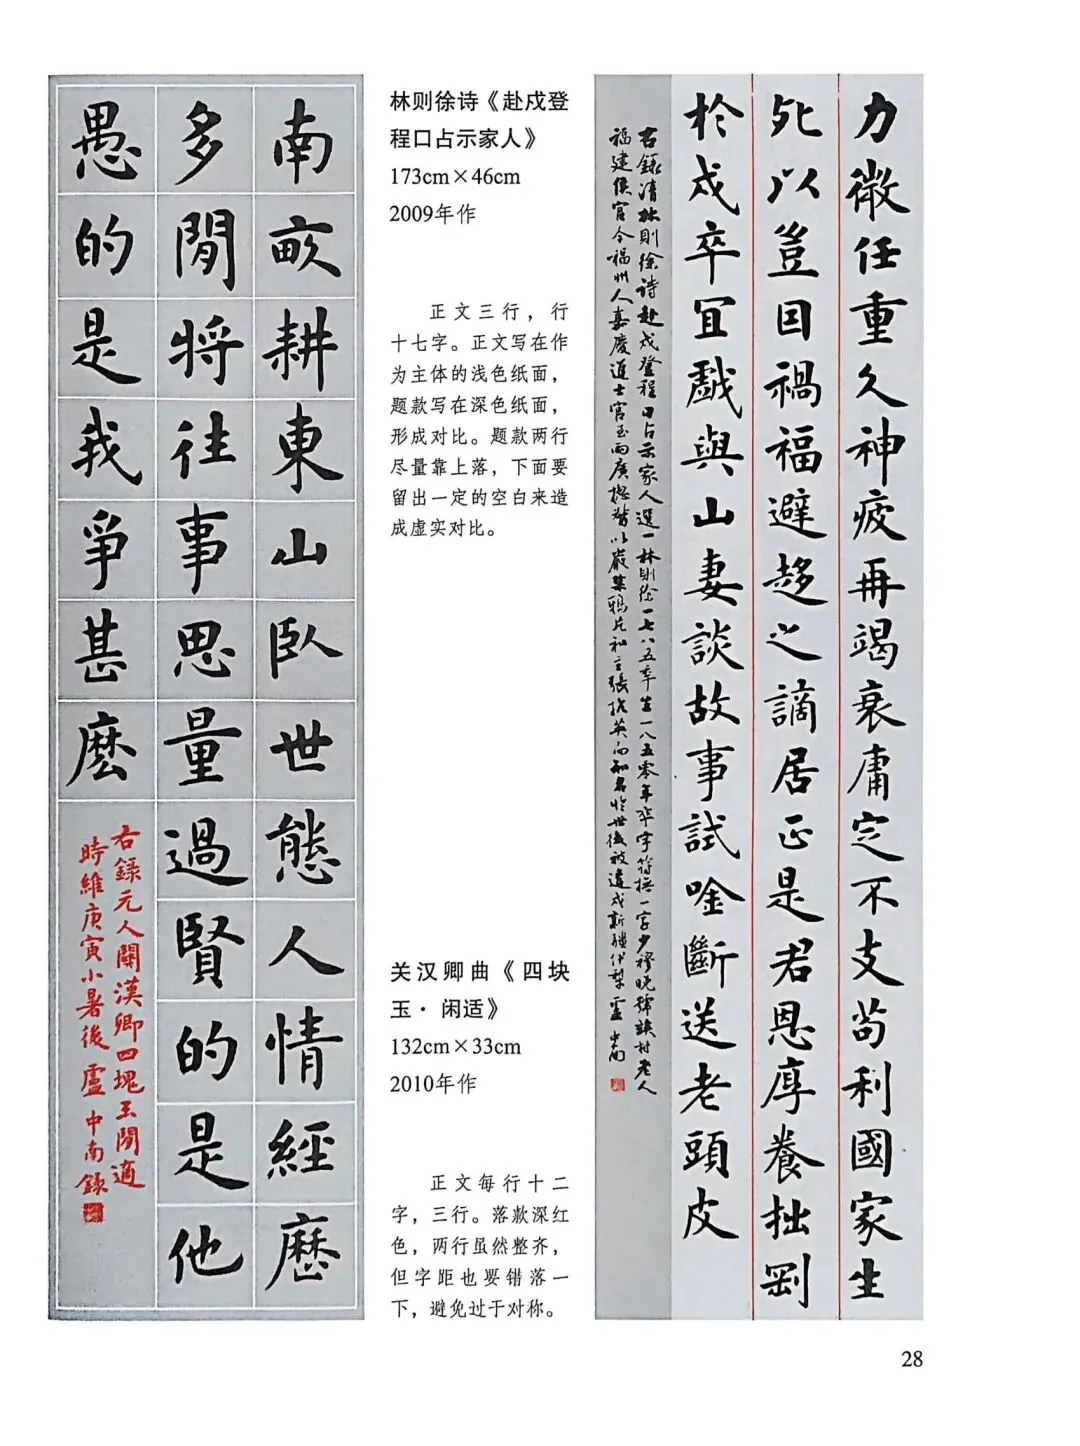 力微任重久神疲再竭衰庸定不支苟利國家生
死以豈因禍福避趍之謫居正是君恩厚養拙剛
於戍卒宜戲與山妻談故事試唫斷送老頭皮
右錄清林則徐詩赴戍登程口占示家人選一林則徐一七八五年生一八五零年卒字符撫一字少穆晚號竢村老人
福建侯官今福州人嘉慶進士官至兩廣總督以嚴禁鴉片和主張抗英而知名於世後被遣戍新疆伊犁 盧中南
林则徐诗《赴戍登
程口占示家人》
173cm×46cm
2009年作
正文三行，行
十七字。正文写在作
为主体的浅色纸面，
题款写在深色纸面，
形成对比。题款两行
尽量靠上落，下面要
留出一定的空白来造
成虚实对比。
关汉卿曲《四块
玉·闲适》
132cm×33cm
2010年作
正文每行十二
字，三行。落款深红
色，两行虽然整齐，
但字距也要错落一
下，避免过于对称。
南畝耕東山臥世態人情經歷
多閒將往事思量過賢的是他
愚的是我爭甚麼
右錄元人關漢卿四塊玉閒適
時維庚寅小暑後 盧中南錄
28